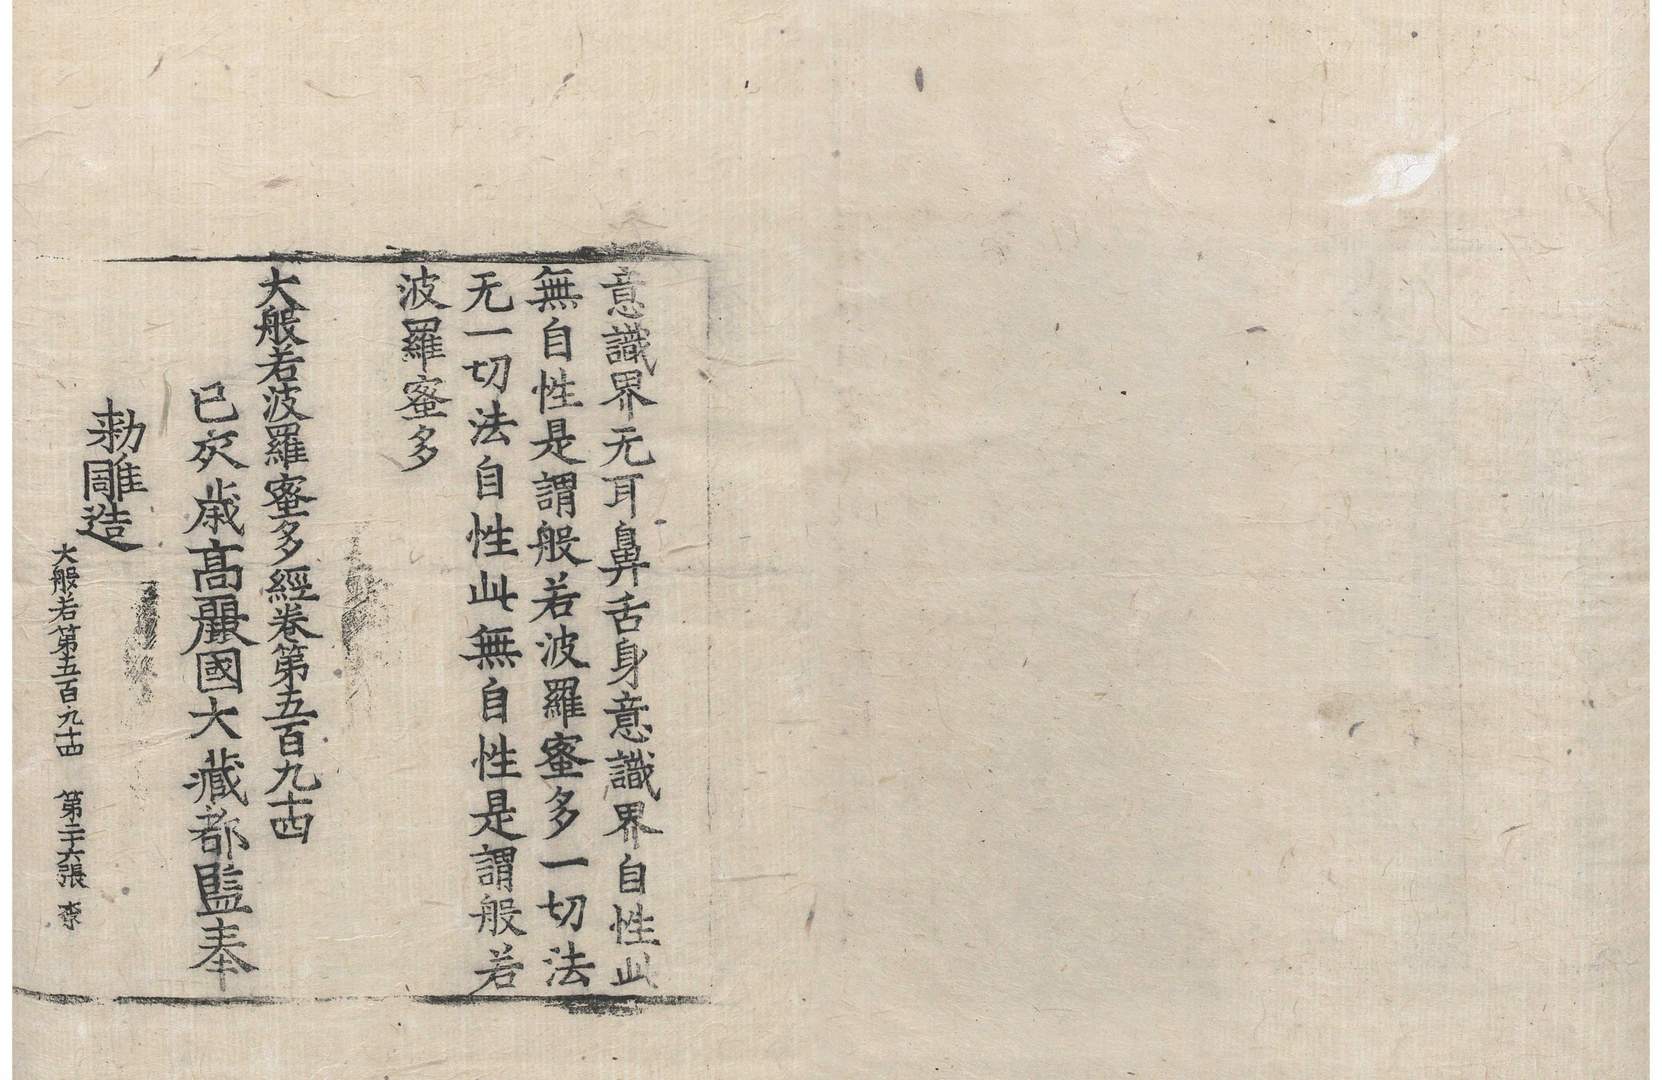 意識界无耳鼻舌身意識界自性此
無自性是謂般若波羅蜜多一切法
无一切法自性此無自性是謂般若
波羅蜜多
大般若波羅蜜多經卷第五百九十四
己亥歲高麗國大藏都監奉
勅雕造
大般若第五百九十四 第二十六張 柰